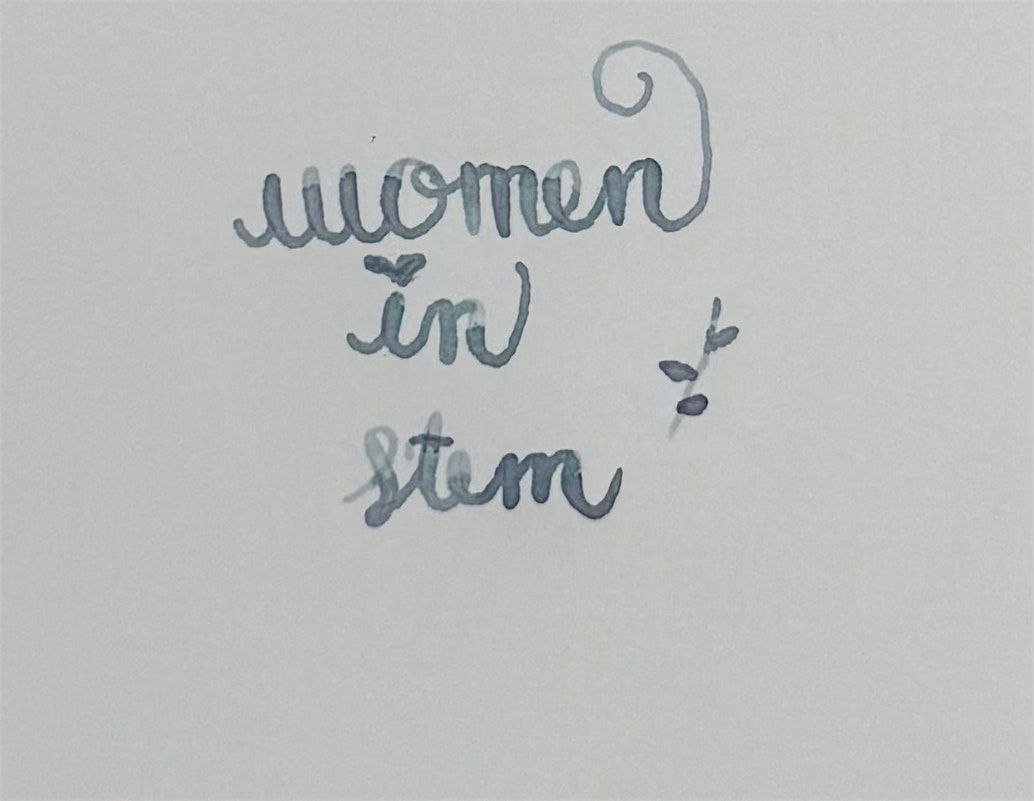 women
in
stem